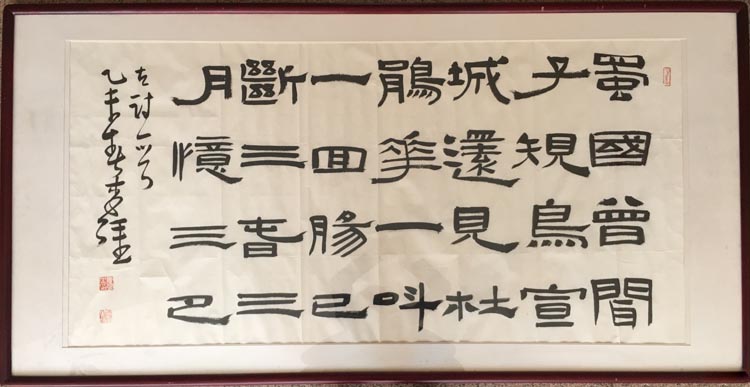 蜀國曾間
子規鳥宣
城還見杜
鵑華一叫
一回腸已
斷三春三
月憶三巴
古詩一首
乙未春李